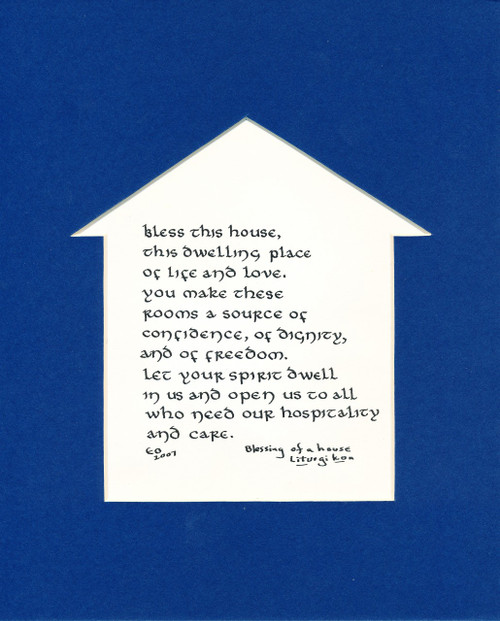 bless this house,
this dwelling place
of life and love.
you make these
rooms a source of
confidence, of dignity,
and of freedom.
Let your spirit dwell
in us and open us to all
who need our hospitality
and care.
EO 2007 Blessing of a house
Liturgikon